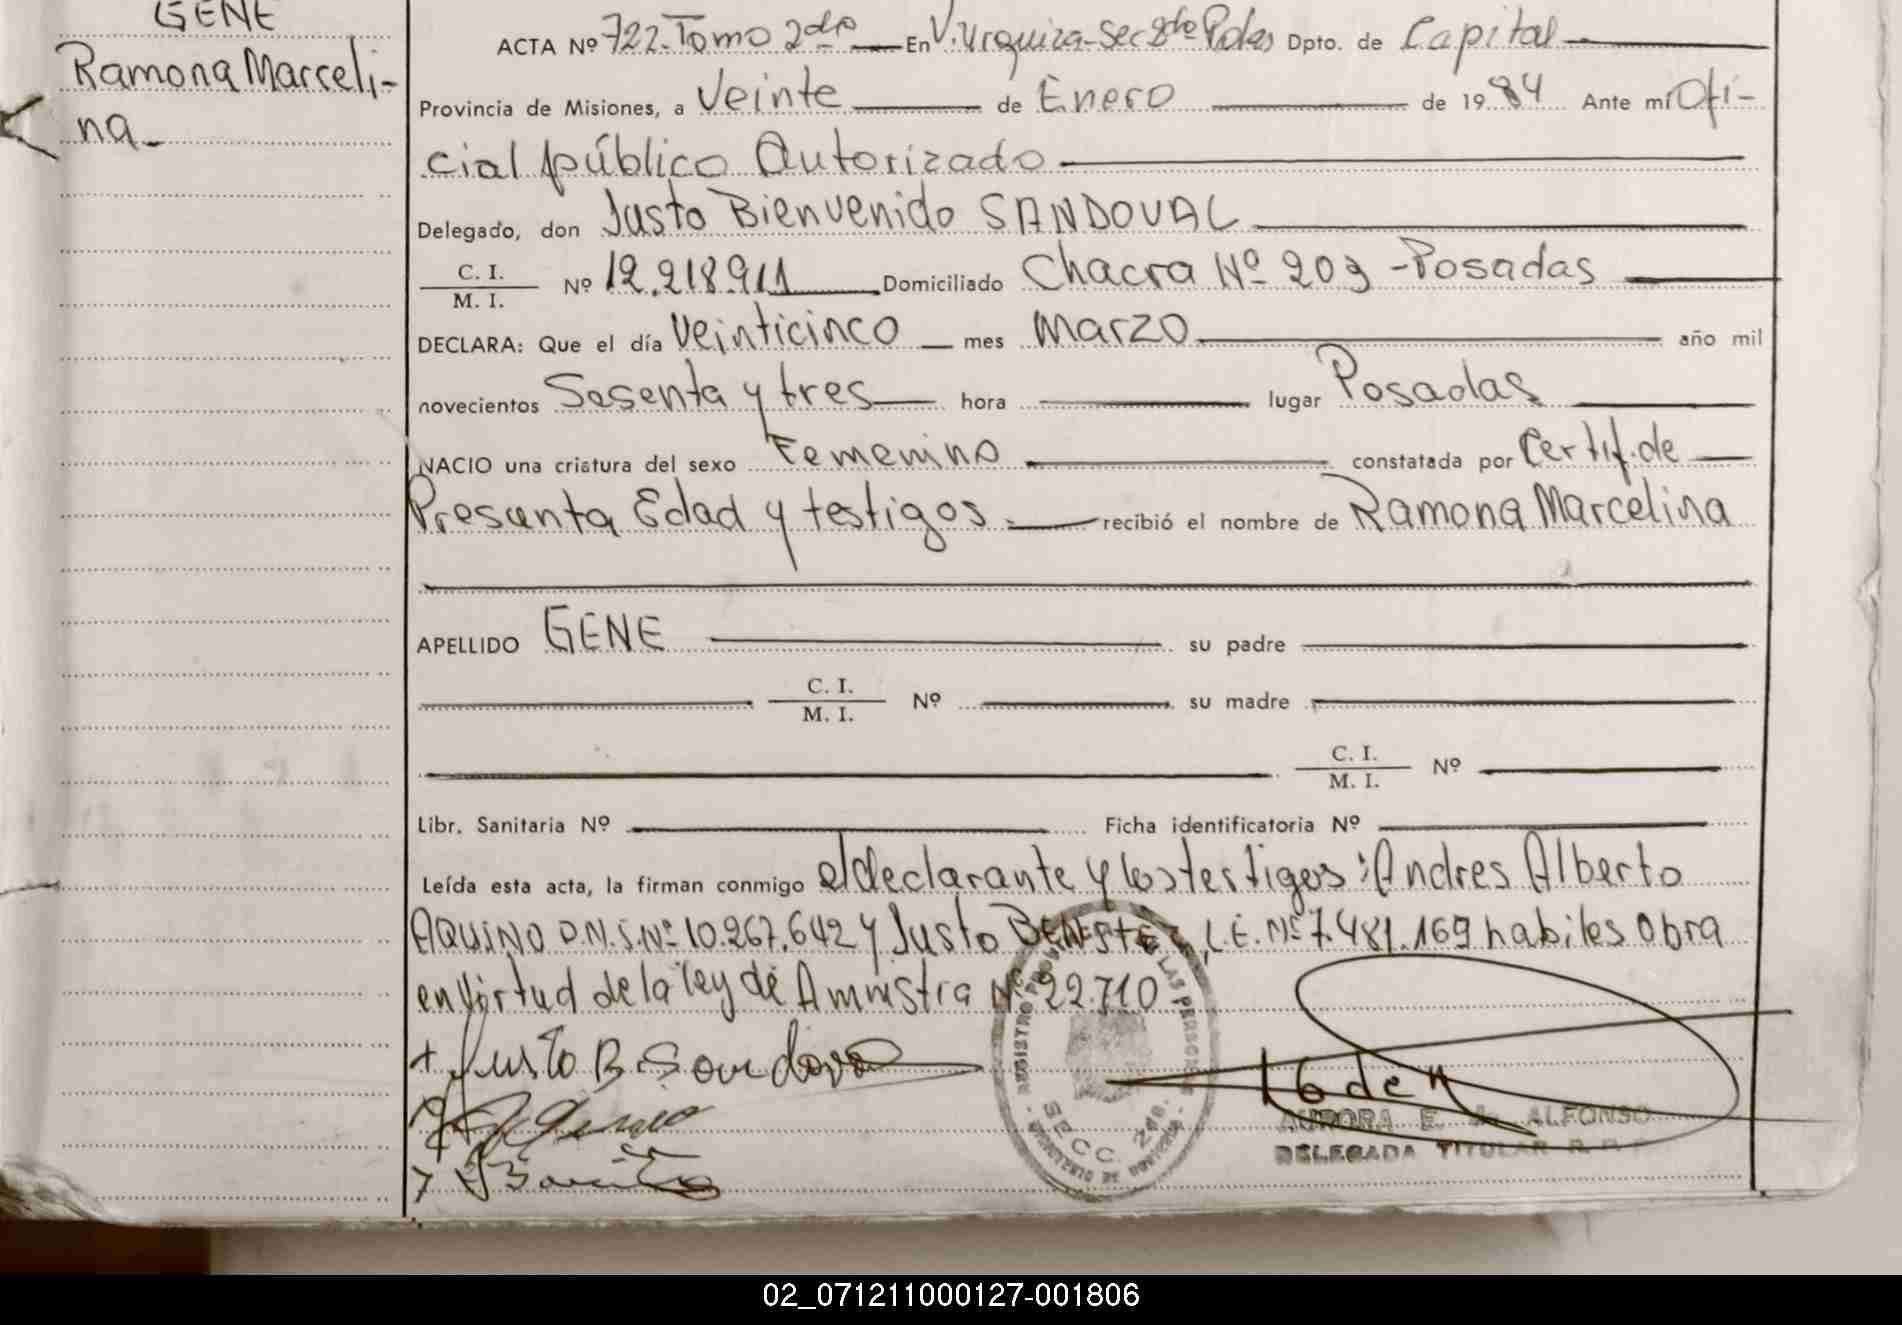 GENE
Ramona Marceli-
na
ACTA Nº 722. Tomo 2do En V. Urquiza-Sec 8da Pdas Dpto. de Capital
Provincia de Misiones, a Veinte de Enero de 1984 Ante mí Ofi-
cial público Autorizado
Delegado, don Justo Bienvenido SANDOVAL
C. I.
M. I. Nº 12.218.911 Domiciliado Chacra Nº 209 - Posadas
DECLARA: Que el día Veinticinco mes Marzo año mil
novecientos Sesenta y tres hora lugar Posadas
NACIO una criatura del sexo Femenino constatada por Certif. de
Presunta Edad y testigos recibió el nombre de Ramona Marcelina
APELLIDO GENE su padre
C. I.
M. I. Nº su madre
C. I.
M. I. Nº
Libr. Sanitaria Nº Ficha identificatoria Nº
Leída esta acta, la firman conmigo el declarante y los testigos: Andres Alberto
AQUINO D.N.I. Nº 10.267.642 y Justo L.E. Nº 7.481.169 habiles Obra
en Virtud de la ley de Amnistia Nº 22.710
Justo B. Sandoval
REGISTRO LAS PERSONAS
SECC.
AURORA E. de ALFONSO
DELEGADA TITULAR R. P.
02_071211000127-001806